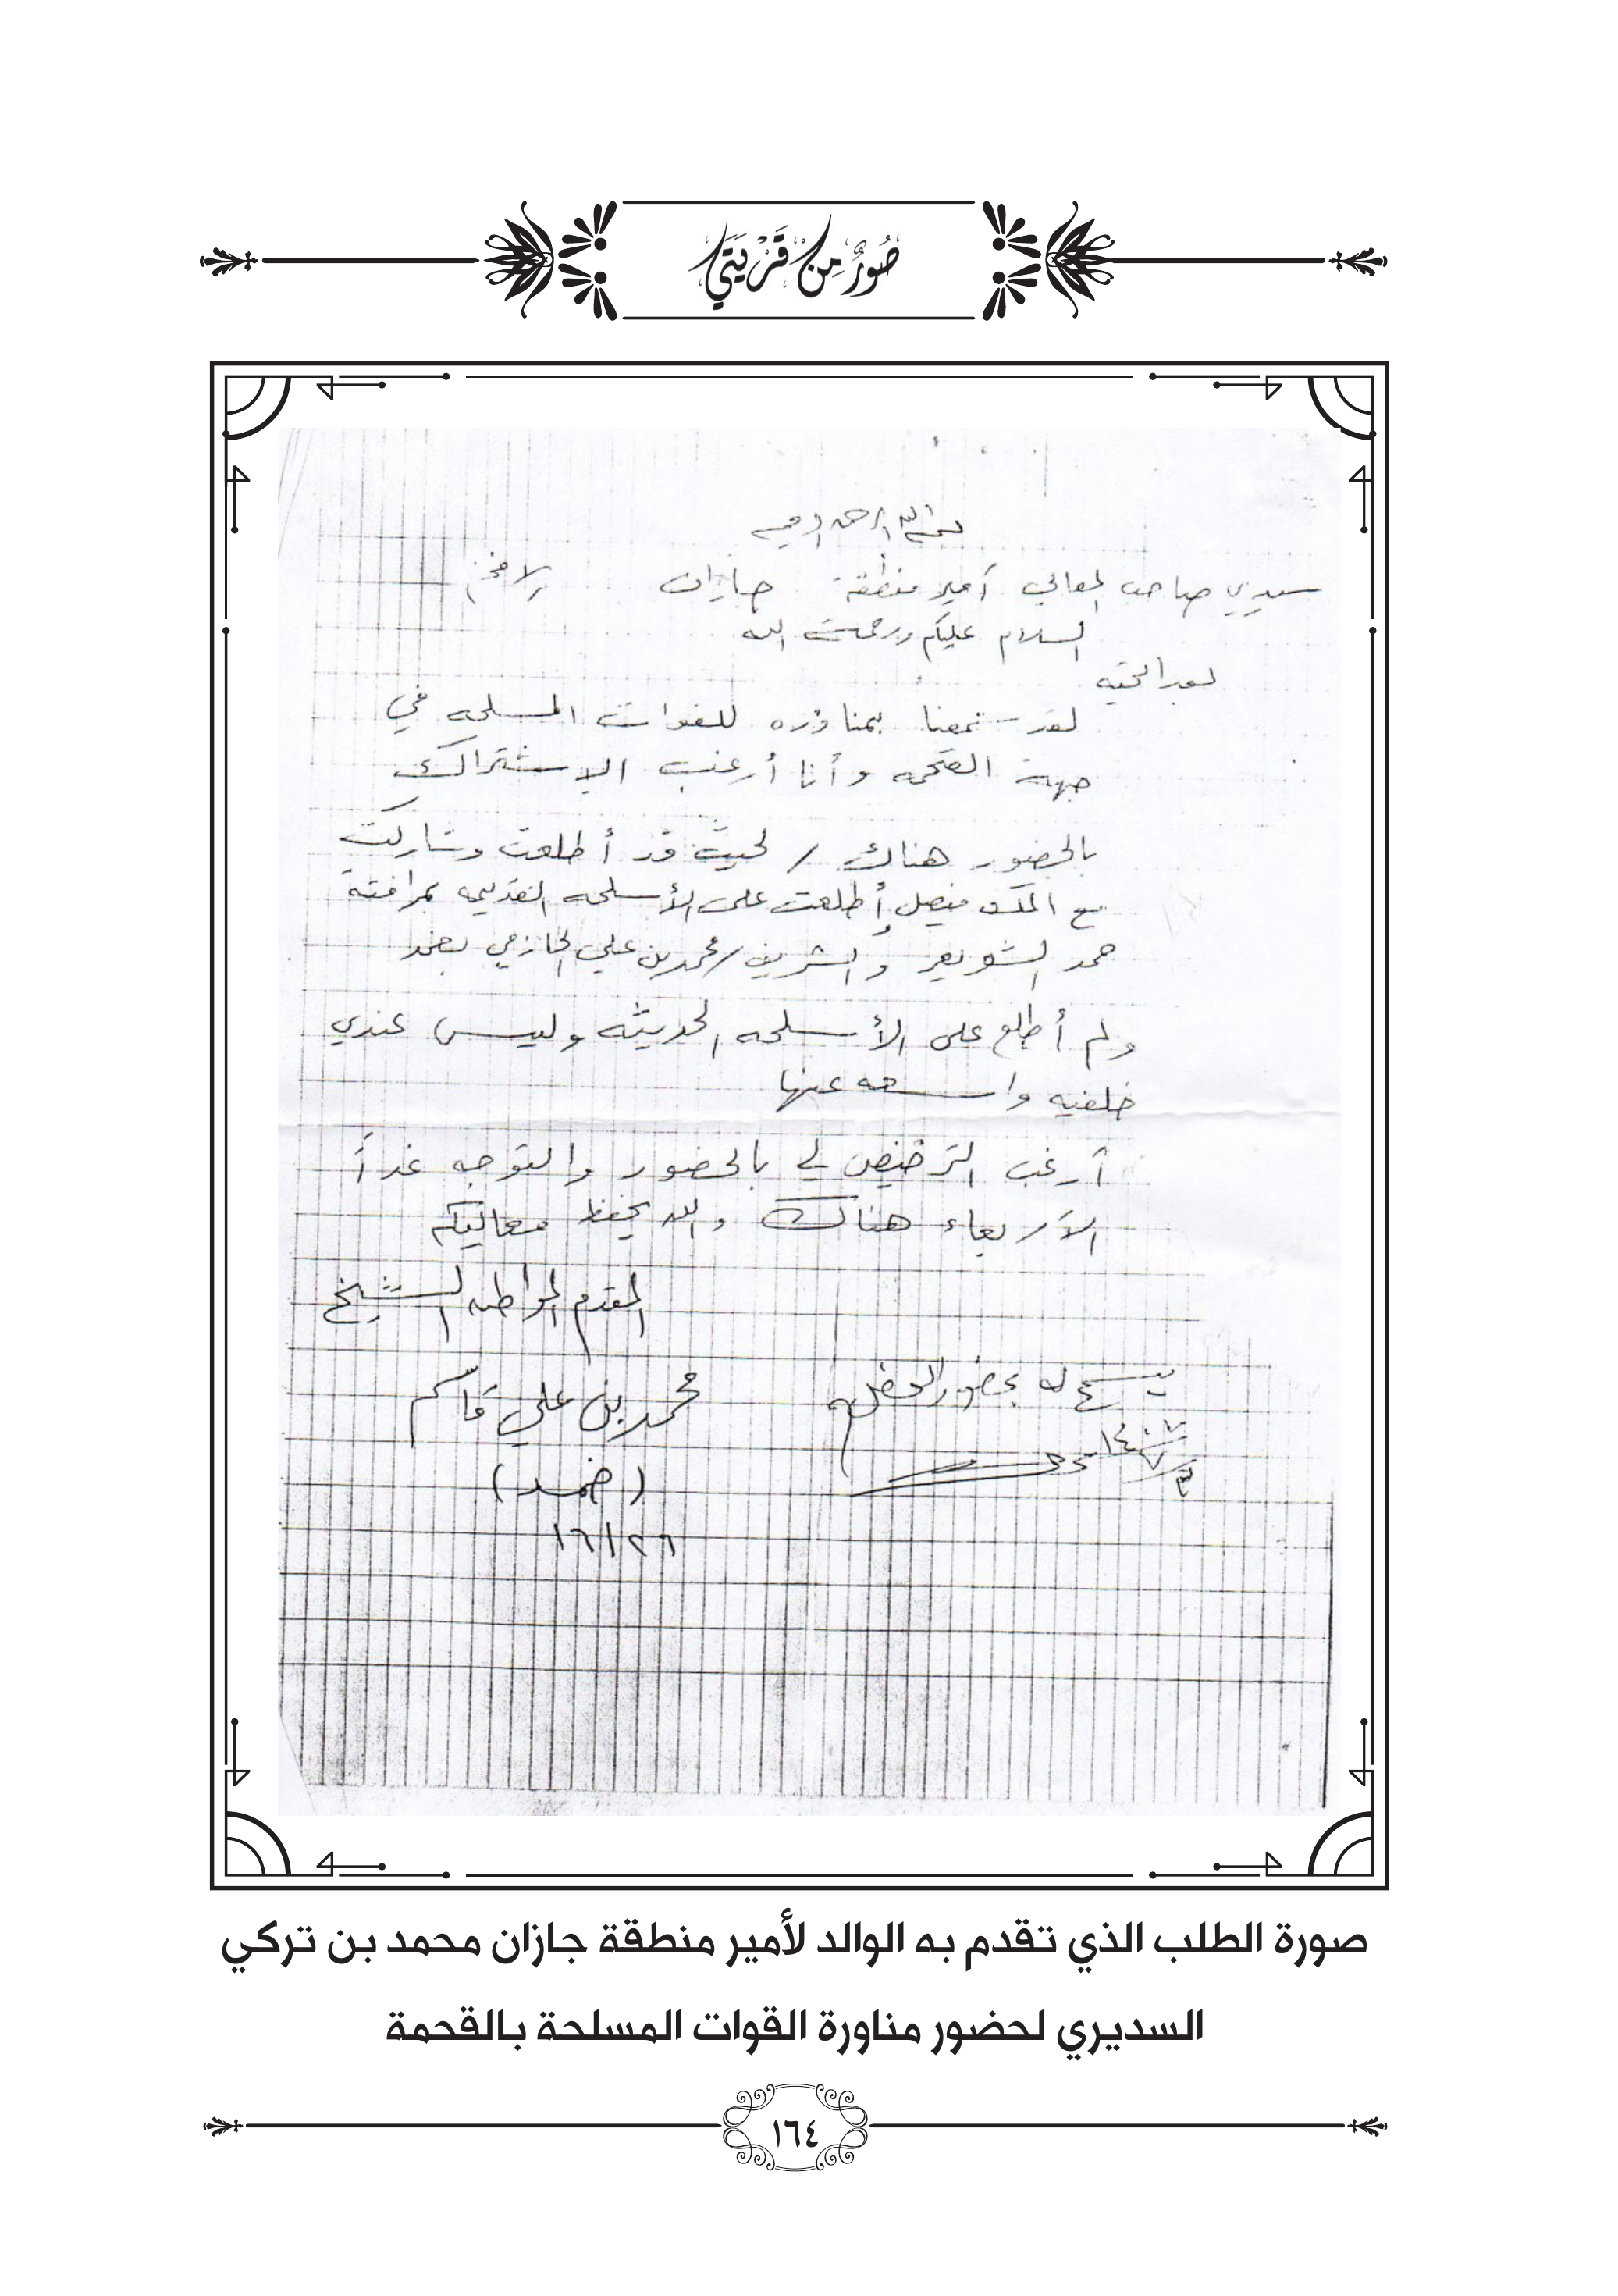 صُوَرٌ مِن قَرْيَتِي
بسم الله الرحمن الرحيم
سيدي صاحب المعالي أمير منطقة جازان الافخم
السلام عليكم ورحمت الله
بعد التحيه
لقد سمعنا بمناوره للقوات المسلحه في
جهة القحمه وأنا أرغب الاشتراك
بالحضور هناك / لحيث قد أطلعت وشاركت
مع الملك فيصل أطلعت على الأسلحه القديمه بمرافقة
حمد الشويعر والشريف / محمد بن علي الحازمي بضمد
ولم أطلع على الأسلحه الحديثه وليس عندي
خلفيه واسعه عنها
أرغب الترخيص لي بالحضور والتوجه غداً
الأربعاء هناك والله يحفظ معاليكم
المقدم المواطن الشيخ
محمد بن علي قاسم
(ضمد)
١٦/٢٦
يسمح له بحضور الحفل
صورة الطلب الذي تقدم به الوالد لأمير منطقة جازان محمد بن تركي
السديري لحضور مناورة القوات المسلحة بالقحمة
١٦٤